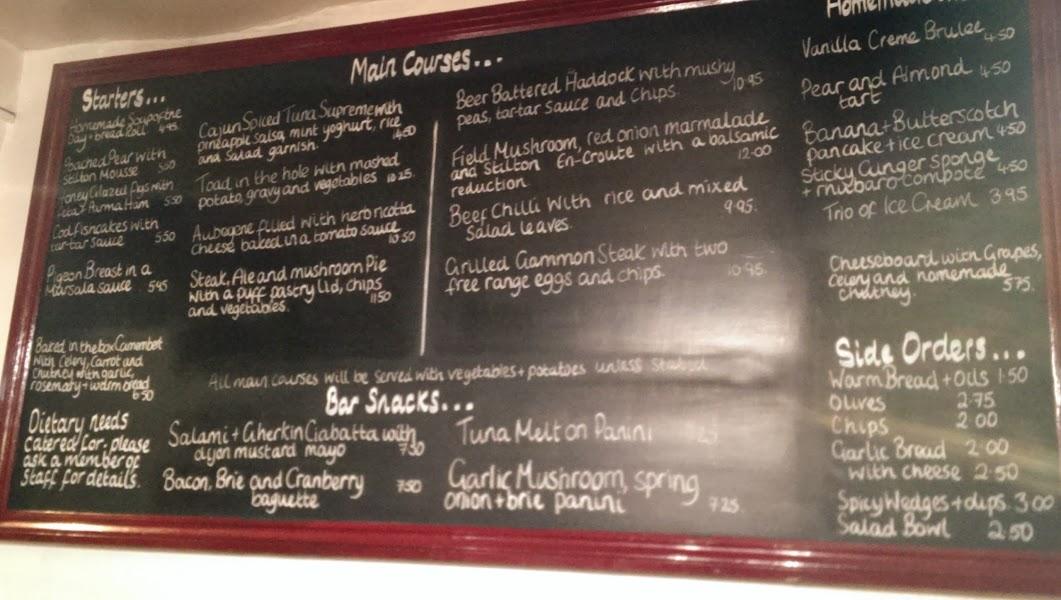 Starters...
Homemade Soup of the
Day + bread roll 4.95
Poached Pear with
Stilton Mousse 5.50
Honey Glazed figs with
Feta + Parma Ham 5.50
Cod fishcakes with
tartar sauce 5.50
Pigeon Breast in a
Marsala sauce 5.95
Baked in the box Camembert
with Celery, Carrot and
Chutney with garlic,
rosemary + warm bread
6.50
Dietary needs
catered for - please
ask a member of
staff for details.
Main Courses...
Cajun Spiced Tuna Supreme with
pineapple salsa, mint yoghurt, rice
and salad garnish. 14.50
Toad in the hole with mashed
potato, gravy and vegetables 10.25
Aubogene filled with herb ricotta
cheese baked in a tomato sauce
10.50
Steak, Ale and mushroom Pie
with a puff pastry lid, chips
and vegetables. 11.50
Beer Battered Haddock with mushy
peas, tartar sauce and chips 10.95
Field Mushroom, red onion marmalade
and stilton En-Croute with a balsamic
reduction 12.00
Beef Chilli with rice and mixed
Salad leaves. 9.95.
Grilled Gammon Steak with two
free range eggs and chips. 10.95.
All main courses will be served with vegetables + potatoes unless stated
Bar Snacks...
Salami + Gherkin Ciabatta with
dijon mustard mayo 7.50
Bacon, Brie and Cranberry
baguette 7.50
Tuna Melt on Panini
Garlic Mushroom, spring
onion + brie panini 7.25.
Vanilla Creme Brulee 4.50
Pear and Almond 4.50
tart
Banana + Butterscotch
pancake + ice cream 4.50
Sticky Ginger sponge
+ rhubarb compote 4.50
Trio of Ice Cream 3.95
Cheeseboard with Grapes,
celery and homemade
chutney. 5.75.
Side Orders...
Warm Bread + Oils 1.50
Olives 2.75
Chips 2.00
Garlic Bread 2.00
with cheese 2.50
Spicy Wedges + dips 3.00
Salad Bowl 2.50